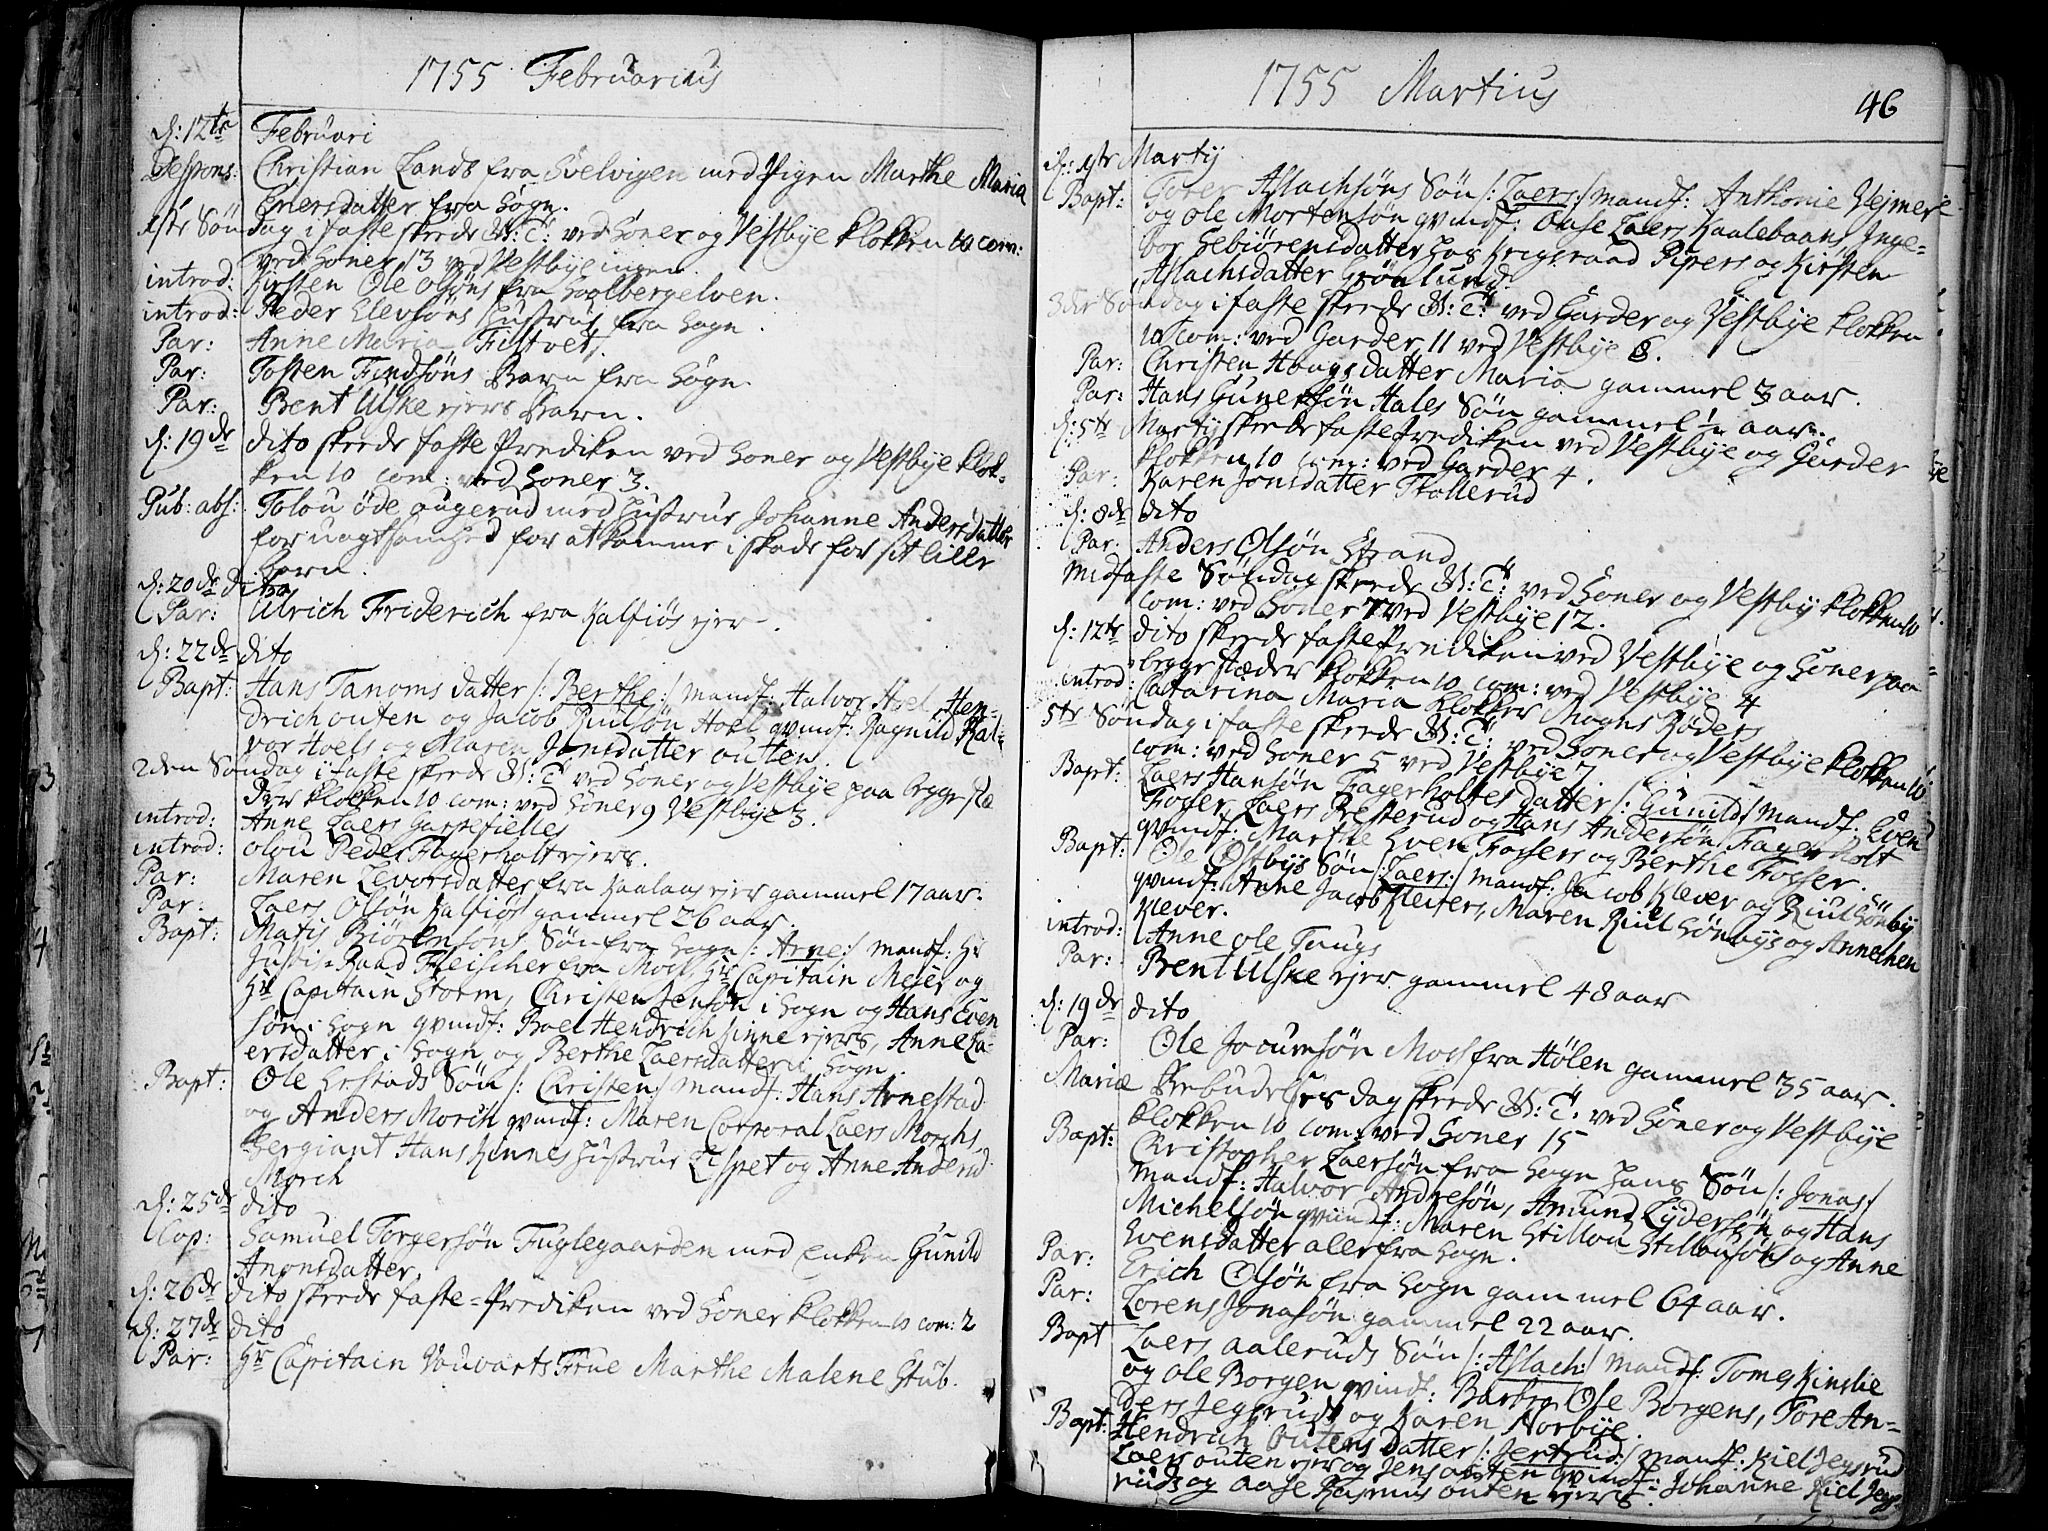 1755 Februarius
d: 12te Februari
Despons: Christian Lands fra Svelvigen med Pigen Marthe Maria
Enersdatter fra Sogn.
1ste Søndag i faste skeede G: T: ved Soner og Vestbye klokken 10 com:
ved Soner 13 ved Vestbye ingen.
introd: Kirsten Ole Olsøns fra Soelbergelven.
introd: Peder Elevsøns Hustrue fra Sogn.
Par: Anne Maria Fistvet.
Par: Tosten Findsøns Barn fra Sogn.
Par: Bent Ulske ejers Barn.
d: 19de dito skeede faste Prediken ved Soner og Vestbye klok-
ken 10 com: ved Soner 3.
Pub: abs: Tolou øde ougerud med Hustrue Johanne Andersdatter
for uagtsomhed for at komme i skade for sit lille
barn.
d: 20de Dito
Par: Ulrich Friderich fra Kalfiøs ejer.
d: 22de dito
Bapt: Hans Tanoms datter /: Berthe :/ mandf: Halvor Hoel, Hen-
drich outen og Jacob Riulsøn Hoel qvindf: Ragnild Hal-
vor Hoels og Maren Jonsdatter outen.
2den Søndag i faste skeede G: T: ved Soner og Vestbye paa begge stæ
der klokken 10 com: ved Soner 9 Vestbye 3.
introd: Anne Laers Garsefielles
introd: olou Peder Fagerholt ejers.
Par: Maren Levorsdatter fra Kaalaas ejer gammel 17 aar.
Par: Laers Olsøn Kalfiøs gammel 26 aar.
Bapt: Matis Biørensøns Søn fra Sogn /: Arne :/ mandf: Hr
Justis-Raad Fleischer fra Moss, Hr Capitain Mejer og
Hr Capitain Storm, Christen Jensøn i Sogn og Hans Even
søn i Sogn qvindf: Boel Hendrich Kinne ejers, Anne La-
ersdatter i Sogn og Berthe Laersdatter i Sogn.
Bapt: Ole Erstads Søn /: Christen :/ mandf: Hans Arnestad
og Anders Morch qvindf: Maren Corporal Laers Morchs
Sergiant Hans Kinnes Hustrue Lispet og Anne Anderud
Morch
d: 25de dito
Cop: Samuel Torgersøn Fuglegaarden med Enken Gunild
Anonsdatter.
d: 26de dito skeede faste-Prediken ved Soner klokken 10 com: 2
d: 27de dito
Par: Hr Capitain Vouvarts Frue Marthe Malene Stub.
1755 Martius
46
d: 1ste Martij
Bapt: Torer Aslachsøns Søn /: Laers :/ mandf: Anthonie Vejmere
og ole Mortensøn qvindf: Aase Laers Kaalebaans, Inge-
bor Gebiørensdatter hos Krigsraad Pipers og Kirsten
Aslachsdatter Grønlund.
3die Søndag i faste skeede G: T: ved Garder og Vestbye klokken
10 com: ved Garder 11 ved Vestbye 8.
Par: Christen Hougs datter Maria gammel 3 aar.
Par: Hans Gunersøn Hales Søn gammel 1/2 aar.
d: 5te Martij skeede faste Prediken ved Vestbye og Garder
klokken 10 com: ved Garder 4.
Par: Karen Jonsdatter Trollerud
d: 8de dito
Par: Anders Olsøn Strand
Midfaste Søndag skeede G: T: ved Soner og Vestby klokken 10
com: ved Soner 7 ved Vestbye 12.
d: 12te dito skeede faste Prediken ved Vestbye og Soner paa
begge stæder klokken 10 com: ved Vestbye 4
introd: Catarina Maria klokker Mogns Røders
5te Søndag i faste skeede G: T: ved Soner og Vestbye klokken 10
com: ved Soner 5 ved Vestbye 7.
Bapt: Laers Hansøn Fagerholtes datter /: Gunild :/ mandf: Evend
Fosser, Laers Presterud og Hans Andersøn Fagerholt
qvindf: Marthe Even Fossers og Berthe Fosser.
Bapt: Ole Østbys Søn /: Laers :/ mandf: Jacob Klever og Riul Sønby
qvindf: Anne Jacob Klevers, Maren Riul Sønbys og Annechen
Klever.
introd: Anne ole Taugs
Par: Bent Ulske ejer gammel 48 aar
d: 19de dito
Par: Ole Jocumsøn Moss fra Hølen gammel 35 aar.
Mariæ Bebudelses dag skeede G: T: ved Soner og Vestbye
klokken 10 com: ved Soner 15
Bapt: Christopher Laersøn fra Sogn hans Søn /: Jonas :/
mandf: Halvor Andresøn, Amund Lydersøn og Hans
Michelsøn qvindf: Maren Stillou Stillousøns og Anne
Evensdatter alle fra Sogn.
Par: Erich Olsøn fra Sogn gammel 64 aar.
Par: Lorens Jonasøn gammel 22 aar.
Bapt Laers aaleruds Søn /: Aslach :/ mandf: Tomes Kinslie
og ole Borgen qvindf: Barbra Ole Borgens, Tore An-
ders Jegsruds og Karen Norbye.
Bapt: Hendrich Outens datter /: Jertrud :/ mandf: Kiel Jegsrud
Laers outen ejer og Jens outen qvindf: Johanne Kiel Jegs-
ruds og Aase Rasmus outen ejers.